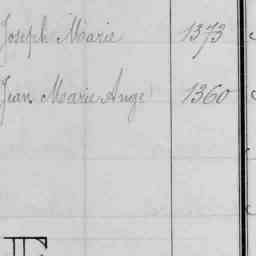 Joseph Marie 1373
Jean Marie Ange 1360